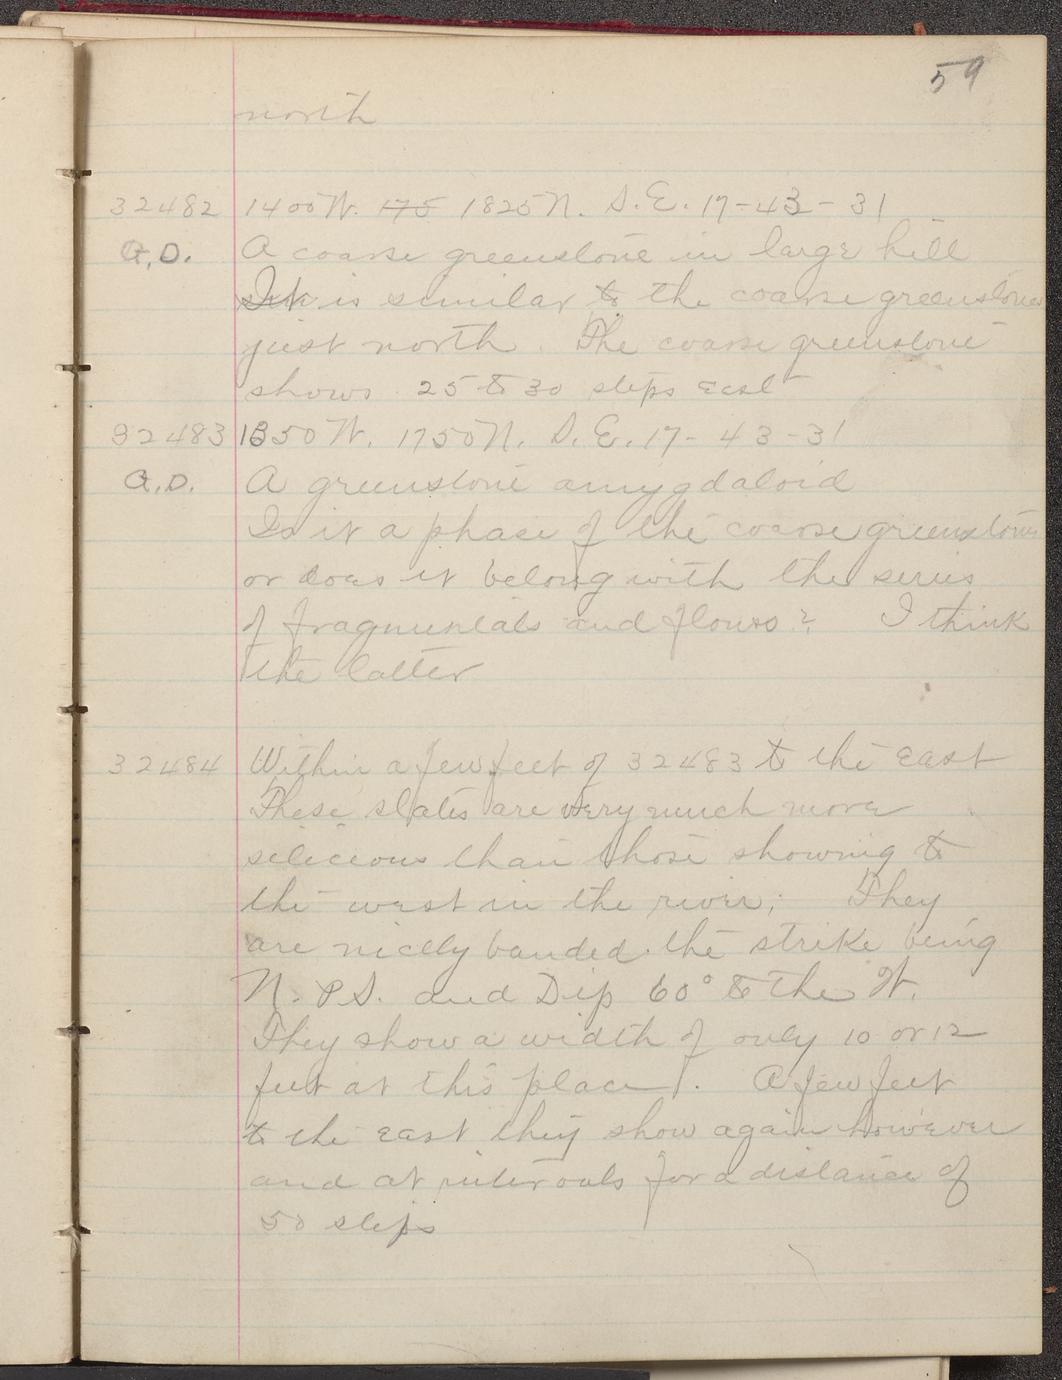 59
north
32482 1400 W. 175 1825 N. S.E. 17-43-31
A.D. A coarse greenstone in large hill
It is similar to the coarse greenstone
just north. The coarse greenstone
shows 25 to 30 steps east
32483 1350 W. 1750 N. S.E. 17-43-31
A.D. A greenstone amygdaloid
Is it a phase of the coarse greenstone
or does it belong with the series
of fragmentals and flows? I think
the latter
32484 Within a few feet of 32483 to the east
These slates are very much more
silicious than those showing to
the west in the river; They
are nicely banded the strike being
N. & S. and Dip 60° to the W.
They show a width of only 10 or 12
feet at this place. A few feet
to the east they show again however
and at intervals for a distance of
50 steps